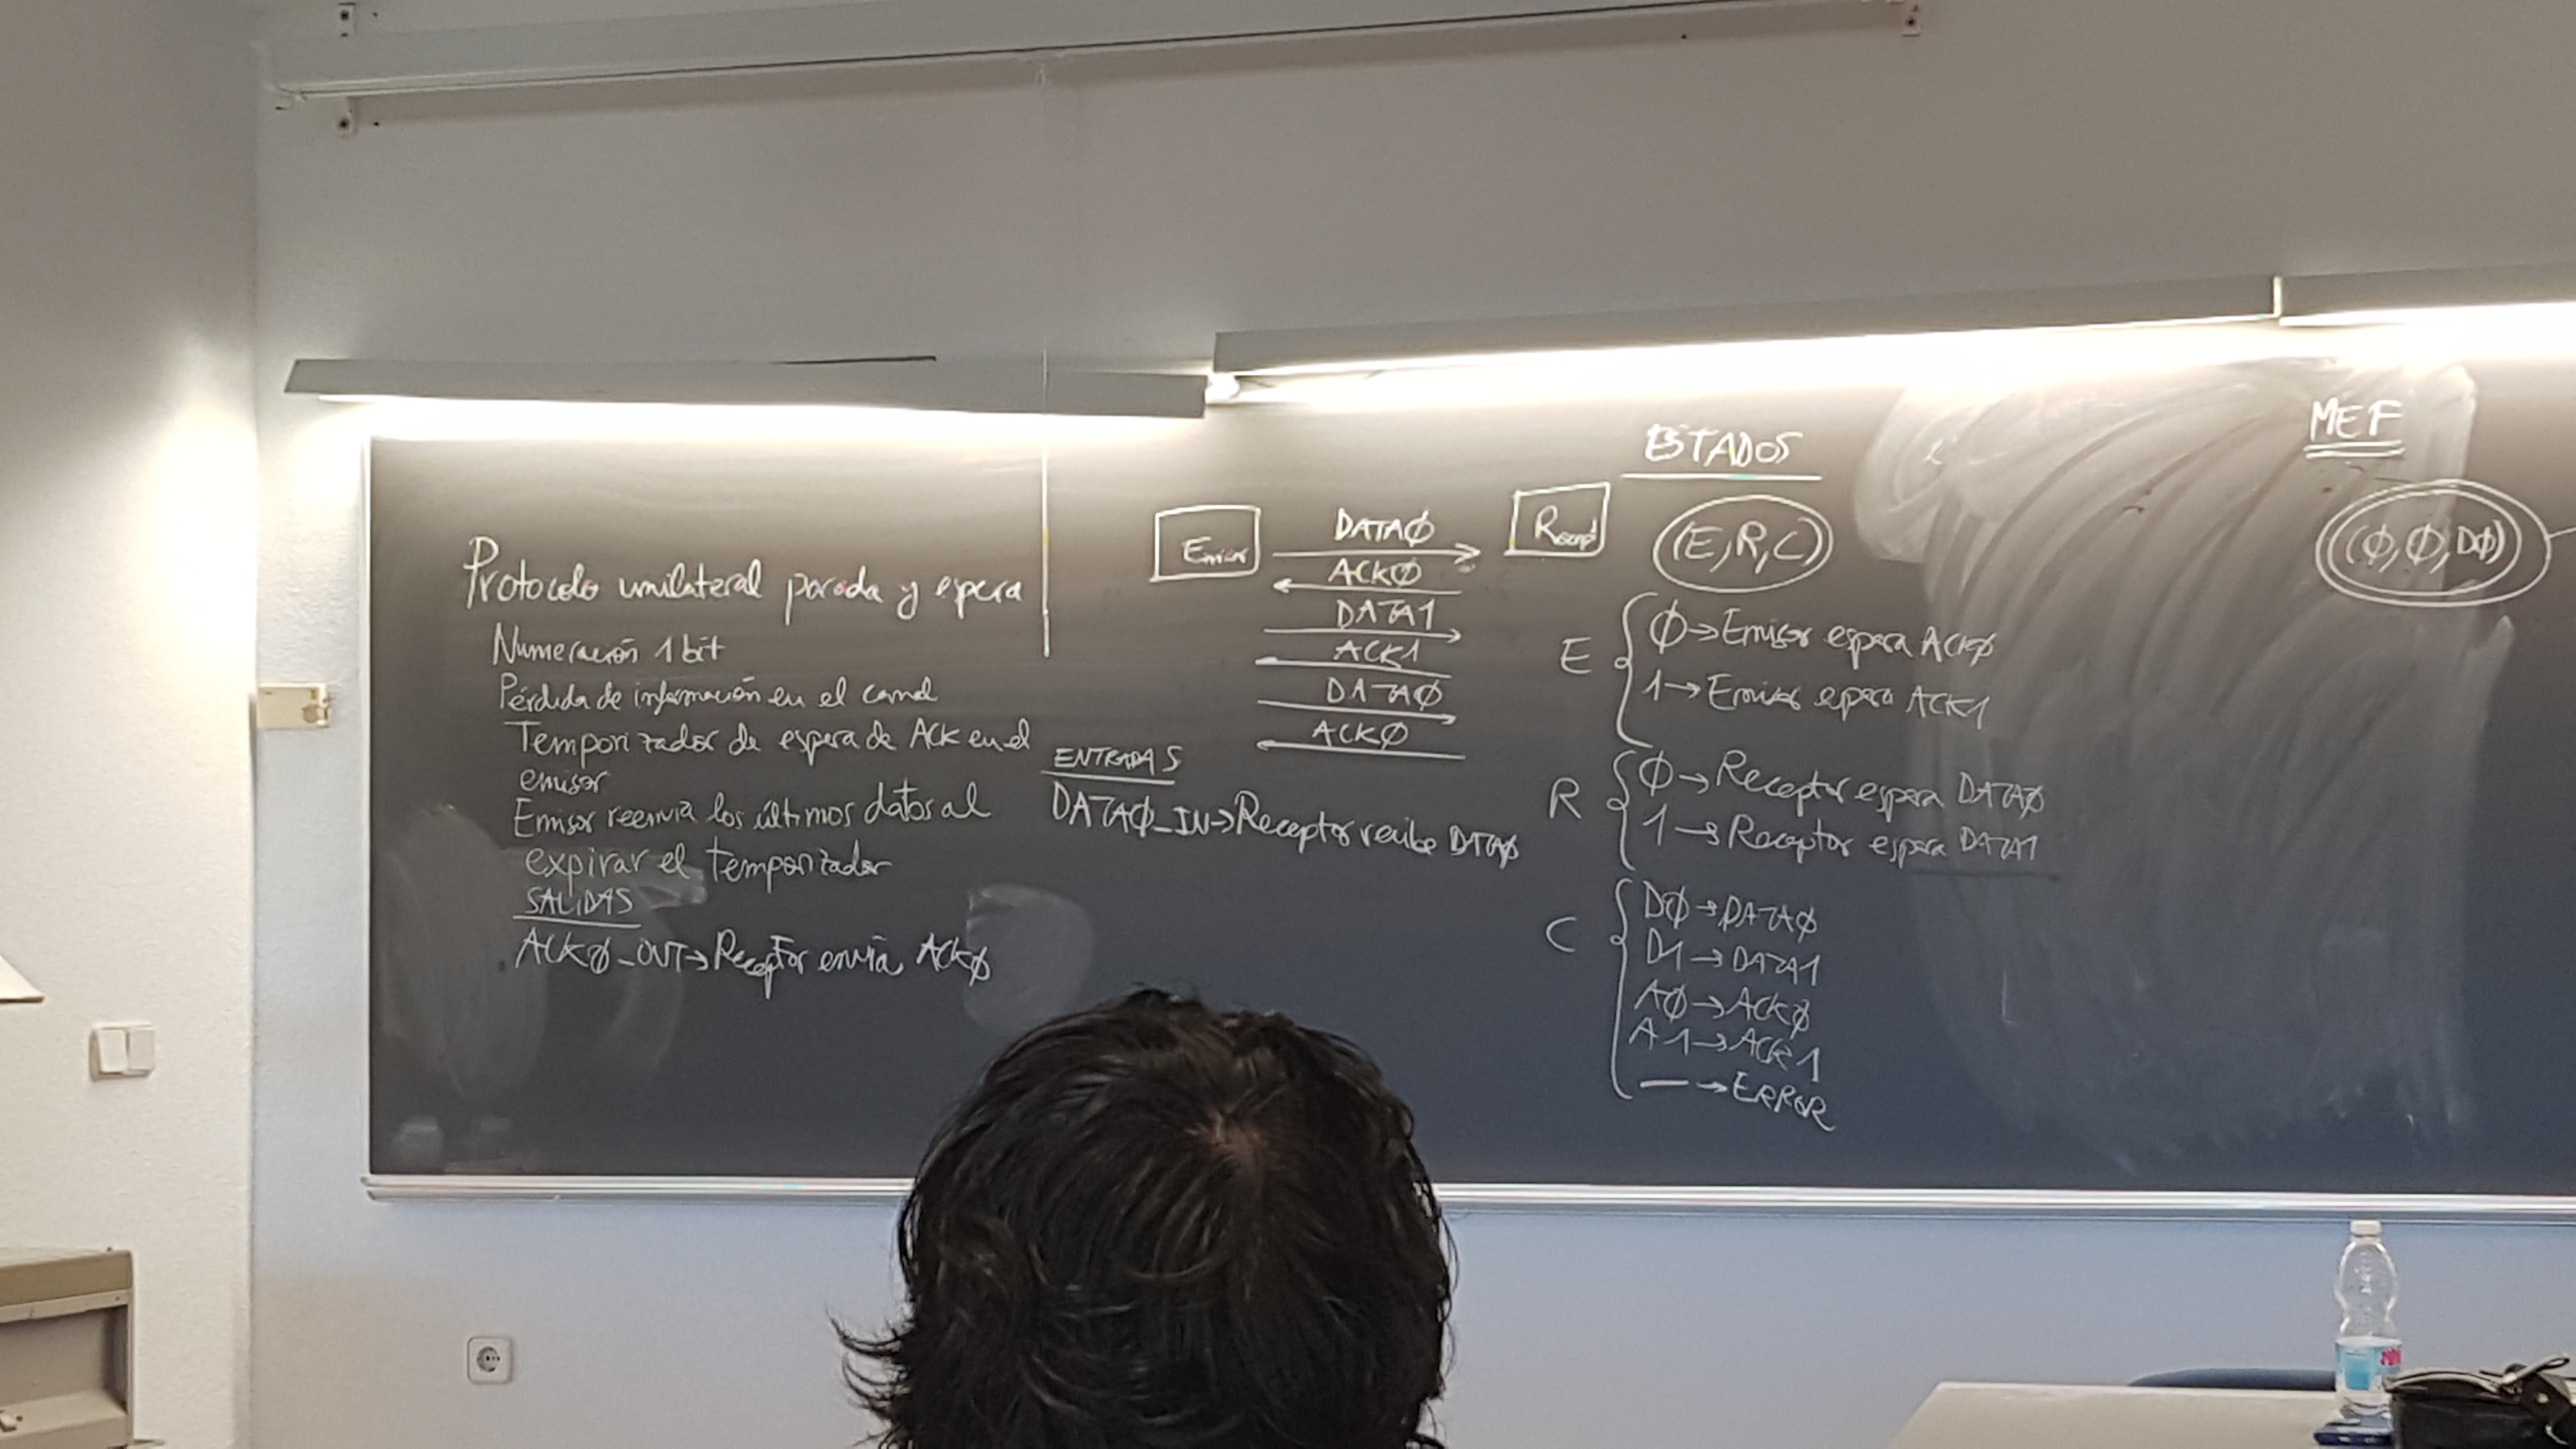 Protocolo unilateral parada y espera
Numeración 1 bit
Pérdida de información en el canal
Temporizador de espera de ACK en el
emisor
Emisor reenvía los últimos datos al
expirar el temporizador
SALIDAS
ACKØ_OUT→Receptor envía ACKØ
Emisor
DATAØ
ACKØ
DATA1
ACK1
DATAØ
ACKØ
ENTRADAS
DATAØ_IN→Receptor recibe DTAØ
ESTADOS
(E,R,C)
E
Ø→Emisor espera ACKØ
1→Emisor espera ACK1
R
Ø→Receptor espera DATAØ
1→Receptor espera DATA1
C
DØ→DATAØ
D1→DATA1
AØ→ACKØ
A1→ACK1
—→ERROR
MEF
(Ø,Ø,DØ)